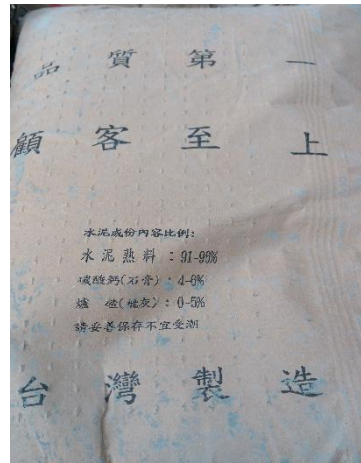 品質第一
顧客至上
水泥成份內容比例:
水泥熟料:91-96%
硫酸鈣(石膏):4-6%
爐碴(爐灰):0-5%
請妥善保存不宜受潮
台灣製造